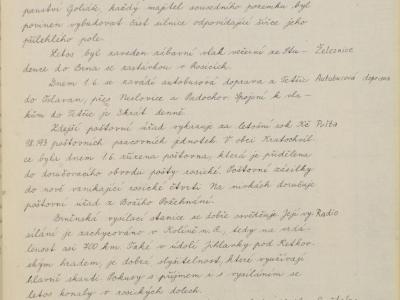 panství Goliáš, každý majitel sousedního pozemku byl
povinen vybudovat část silnice odpovídající šířce jeho
přilehlého pole.
Letos byl zaveden zábavní vlak večerní ze Stu- Železnice
dence do Brna se zastávkou v Rosicích.
Dnem 1.6. se zavádí autobusová doprava z Tetčic Autobusová doprava
do Oslavan, přes Neslovice a Padochov. Spojení k vla-
kům do Tetčic je 5krát denně.
Zdejší poštovní úřad vykazuje za letošní rok Kč Pošta
18.193 poštovních pracovních jednotek. V obci Kratochvil-
ce byla dnem 1.6. zřízena poštovna, která je přidělena
do doručovacího obvodu pošty rosické. Poštovní zásilky
do nově vznikající rosické čtvrti Na nivkách doručuje
poštovní úřad z Božího Požehnání.
Brněnská vysílací stanice se dobře osvědčuje. Její vy- Radio
sílání je zachycováno v Kolíně n.R., tedy na vzdá-
lenost asi 700 km. Také v údolí Jihlavky pod Ketkov-
ským hradem, je dobrá slyšitelnost, které využívají
hlavně skauti. Pokusy s příjmem i s vysíláním se
letos konaly v rosických dolech.